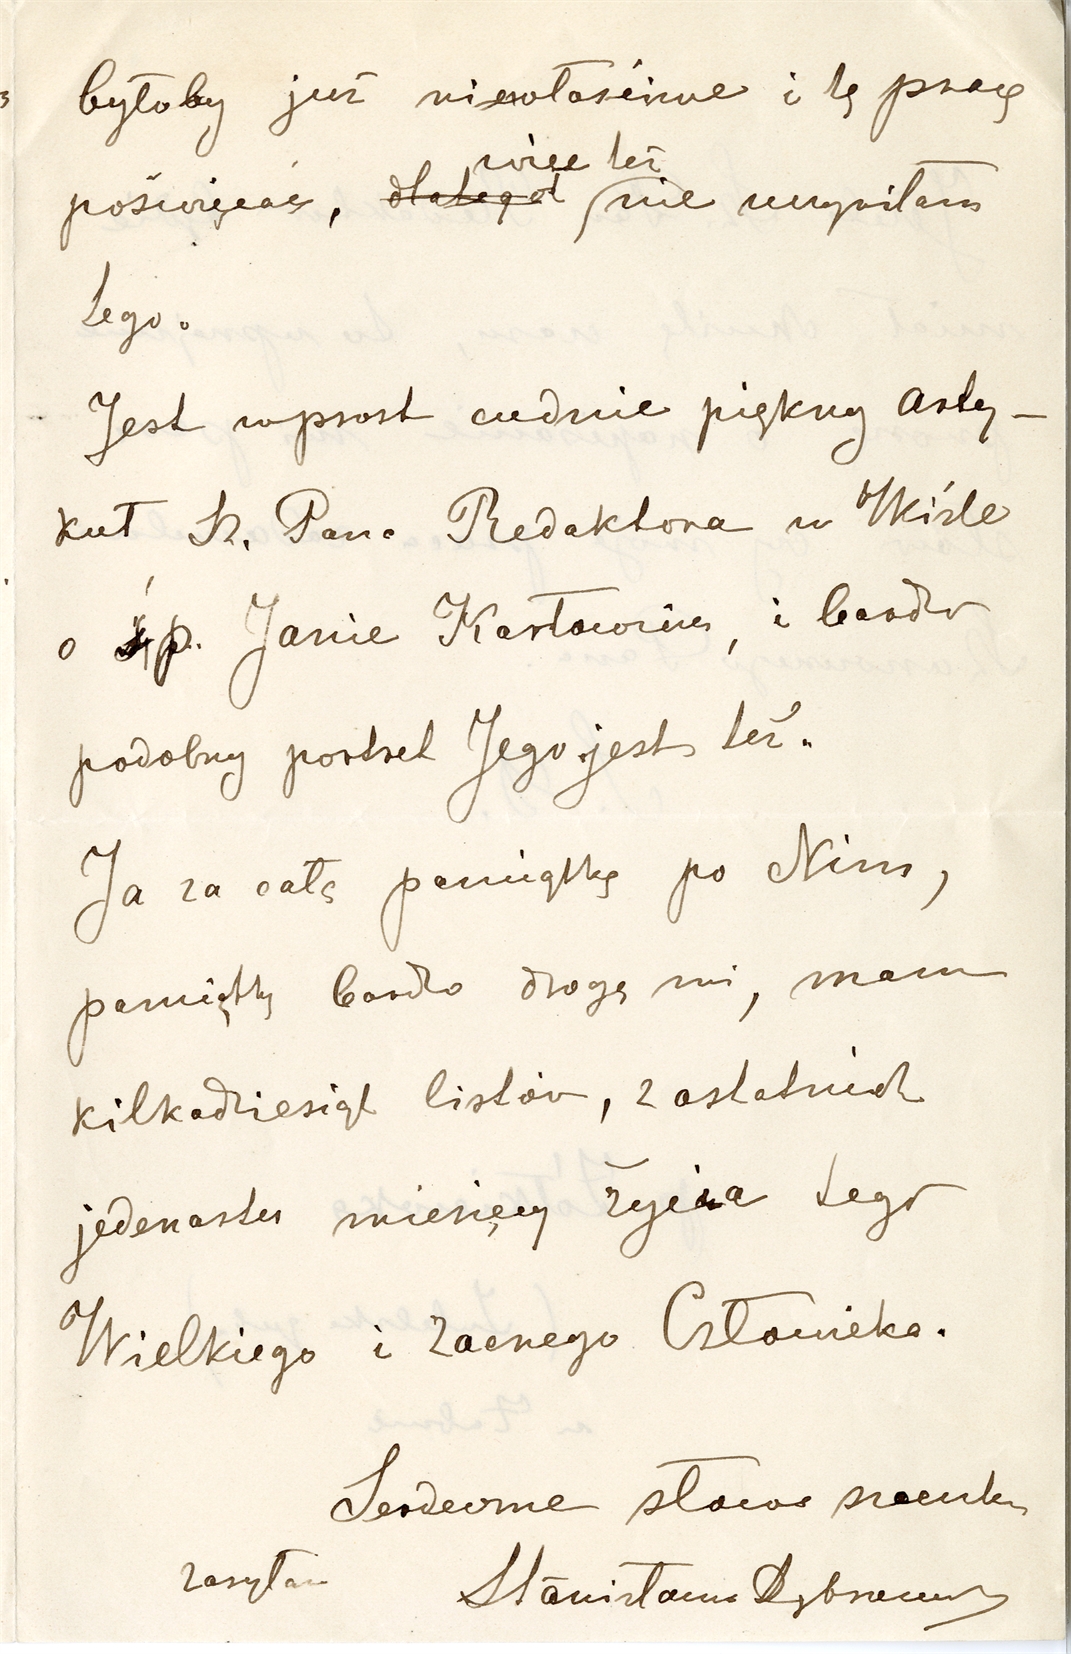 byłoby już niewłaściwe i tę pracę
poświęcać, dlatego więc też nie uczyniłam
tego.
Jest wprost cudnie piękny arty-
kuł Sz. Pana Redaktora w Wiśle
o śp. Janie Karłowiczu, i bardzo
podobny portret Jego jest też.
Ja za całą pamiątkę po Nim,
pamiątkę bardzo drogą mi, mam
kilkadziesiąt listów, z ostatnich
jedenastu miesięcy życia tego
Wielkiego i zacnego Człowieka.
Serdeczne słowa szacunku
zasyłam Stanisława Dąbrowska